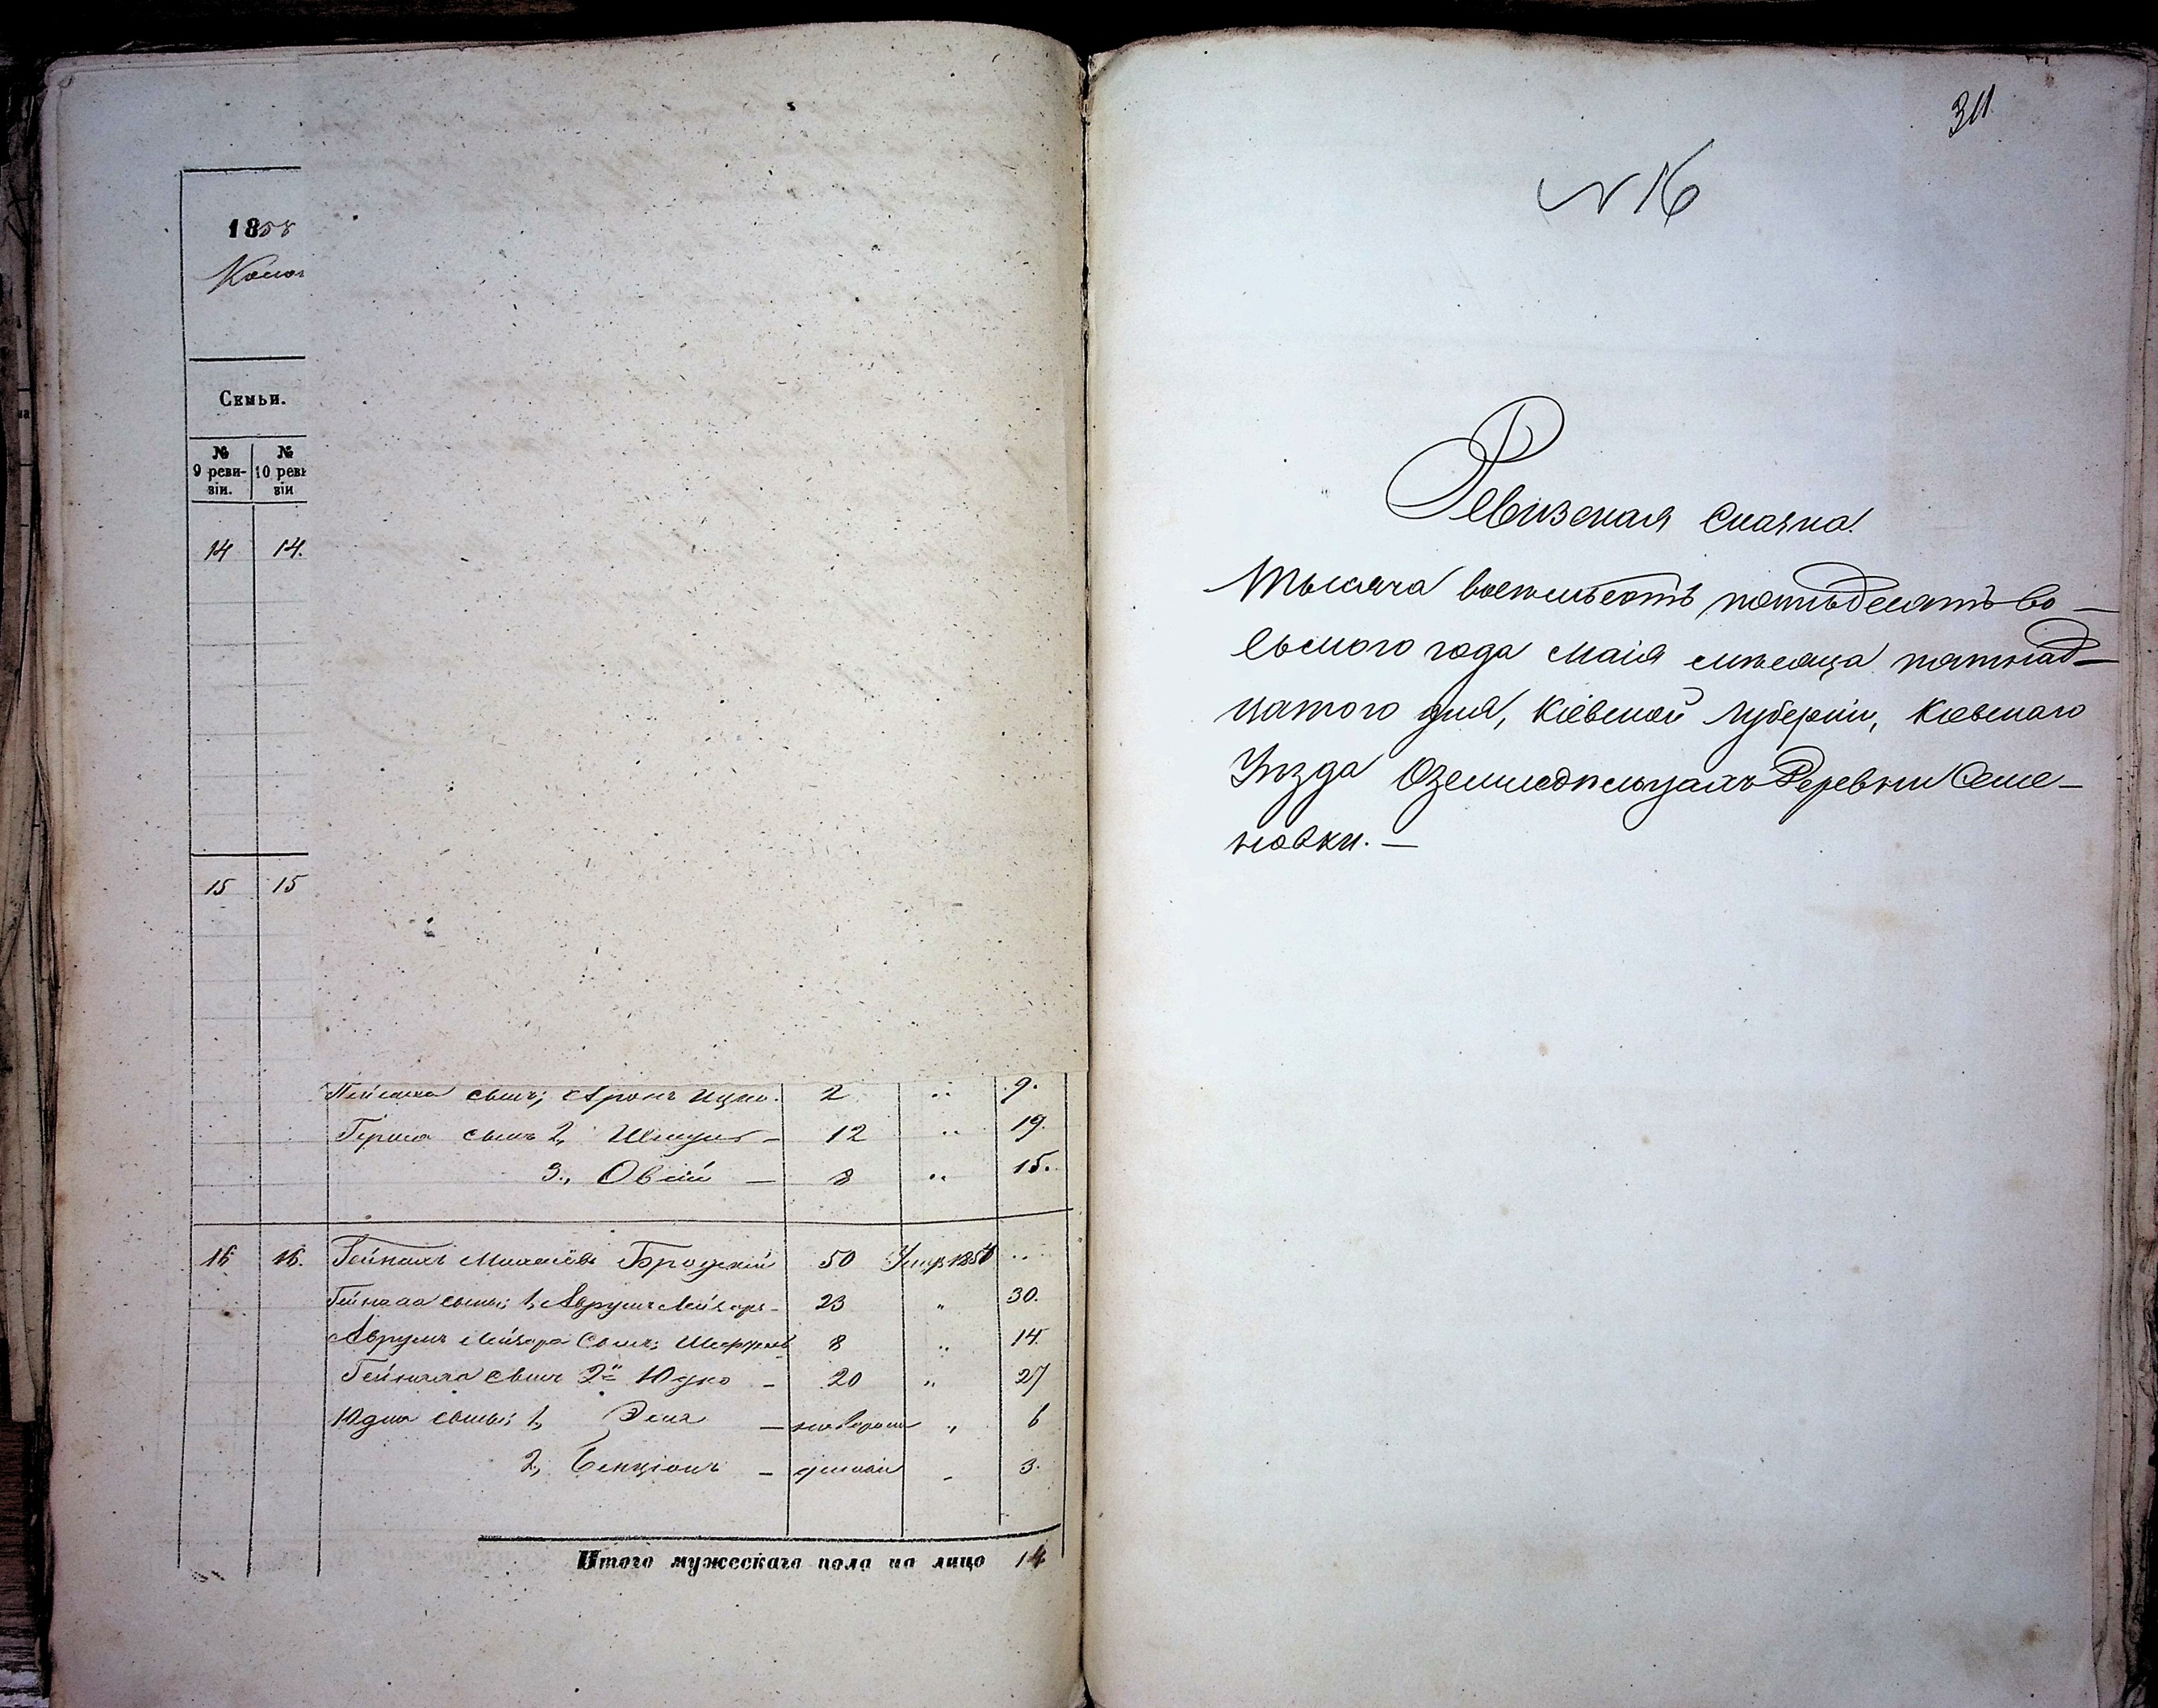 1858
Семьи.
№ №
9 реви- 10 реви
зіи. зіи
14 14.
15 15
сынъ; Аронъ Ицко. 2 „ 9.
Герша сынъ 2, Шмуль – 12 „ 19.
3., Овсій – 8 „ 15.
16 16. Бродскій 50 Умр. 1854 „
сынъ: 1, Аврумъ Лейзоръ – 23 „ 30.
Аврумъ Лейзора сынъ; 8 „ 14.
сынъ 2й Юдко – 20 „ 27
Юдки сынъ: 1, – новорож „ 6
2, Бенціонъ – денный „ 3.
Итого мужескаго пола на лицо 14
311
№ 16
Ревизская Сказка.
Тысяча восемьсотъ пятьдесятъ во–
сьмого года маія мѣсяца пятнад–
цатого дня, Кіевской Губерніи, Кіевскаго
Уѣзда О земледѣльцахъ Деревни Семе–
новки. –